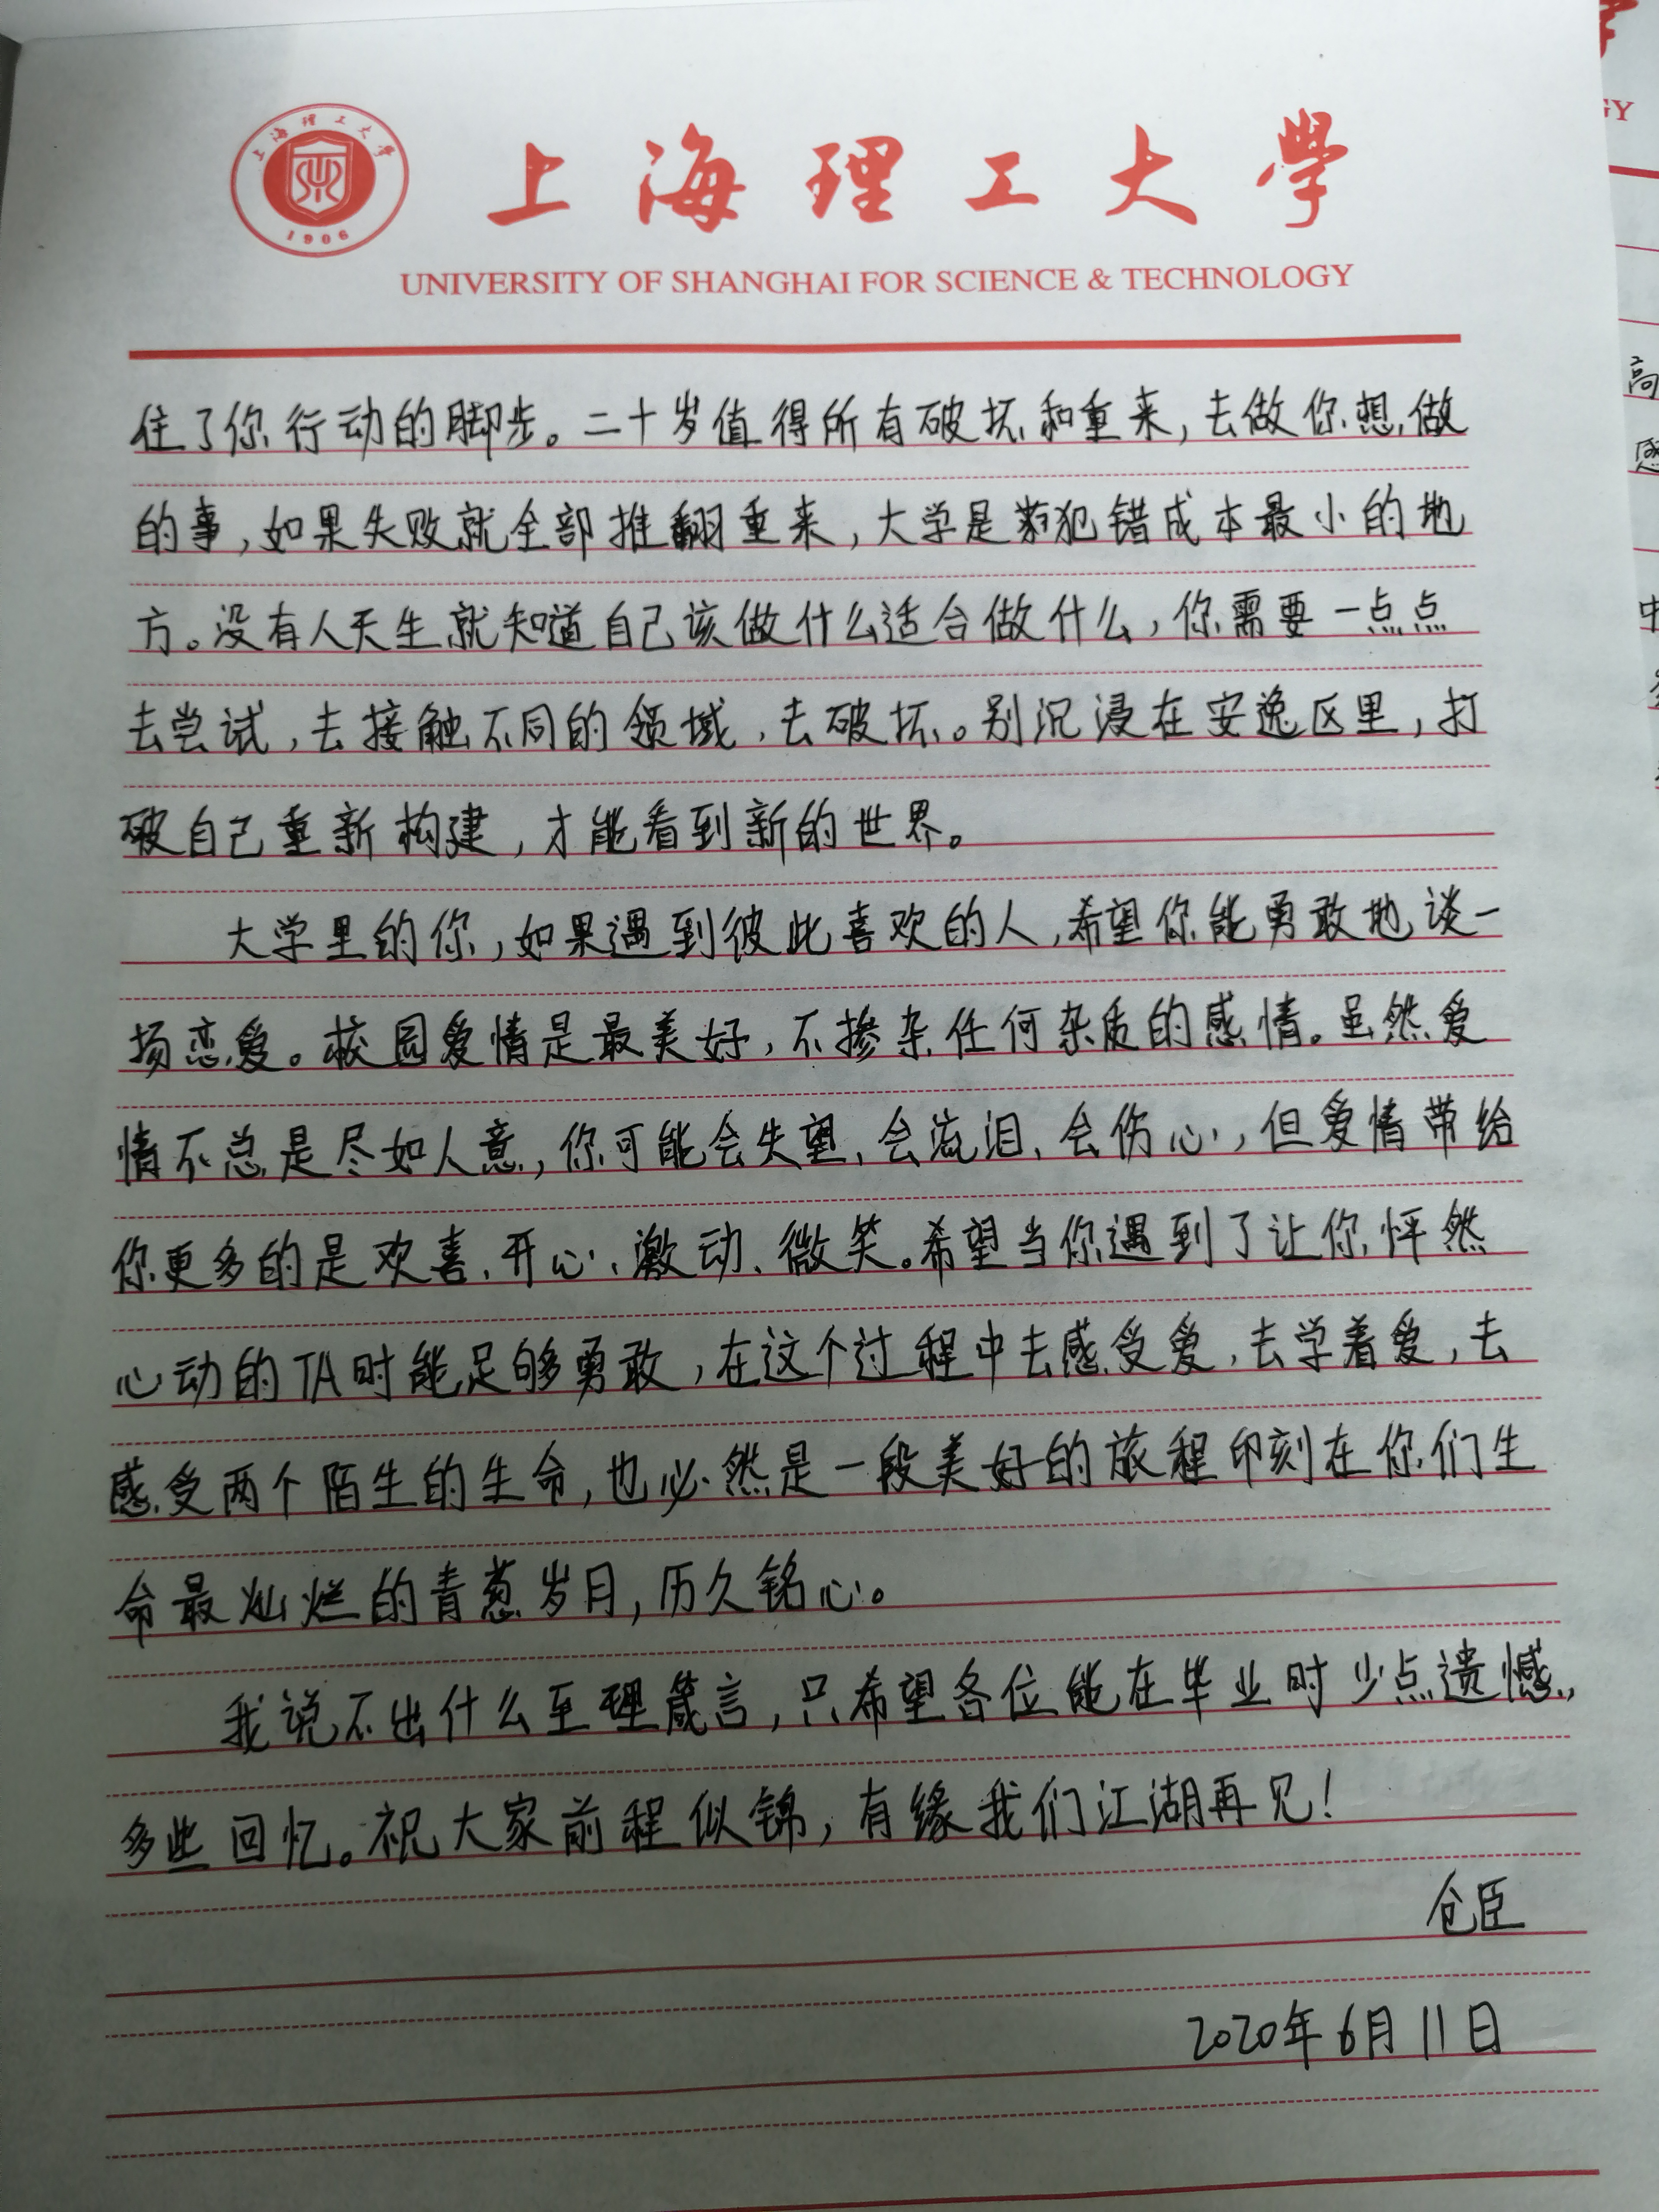 上海理工大學
1906
上海理工大學
UNIVERSITY OF SHANGHAI FOR SCIENCE & TECHNOLOGY
住了你行动的脚步。二十岁值得所有破坏和重来,去做你想做
的事,如果失败就全部推翻重来,大学是犯错成本最小的地
方。没有人天生就知道自己该做什么适合做什么,你需要一点点
去尝试,去接触不同的领域,去破坏。别沉浸在安逸区里,打
破自己重新构建,才能看到新的世界。
大学里的你,如果遇到彼此喜欢的人,希望你能勇敢地谈一
场恋爱。校园爱情是最美好,不掺杂任何杂质的感情。虽然爱
情不总是尽如人意,你可能会失望、会流泪、会伤心,但爱情带给
你更多的是欢喜、开心、激动、微笑。希望当你遇到了让你怦然
心动的TA时能足够勇敢,在这个过程中去感受爱,去学着爱,去
感受两个陌生的生命,也必然是一段美好的旅程印刻在你们生
命最灿烂的青葱岁月,历久铭心。
我说不出什么至理箴言,只希望各位能在毕业时少点遗憾,
多些回忆。祝大家前程似锦,有缘我们江湖再见!
仓臣
2020年6月11日
GY
高
感
中